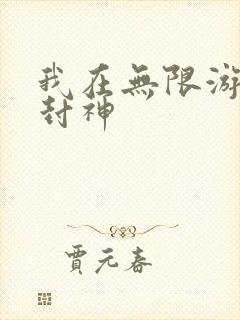 我在無限游
封神
賈元春